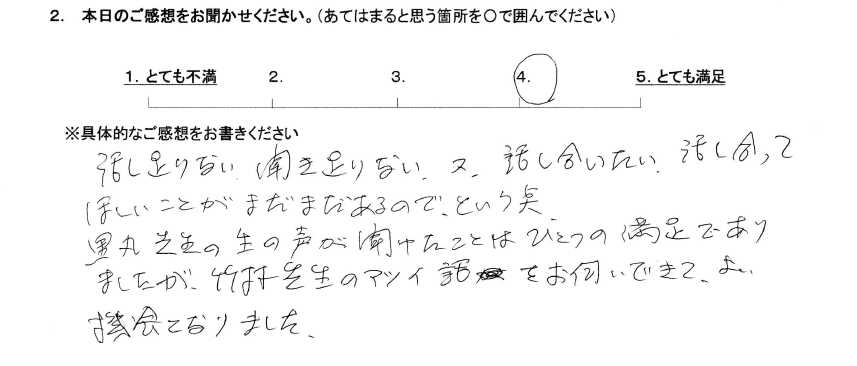 2. 本日のご感想をお聞かせください。(あてはまると思う箇所を〇で囲んでください)
1. とても不満 2. 3. 4. 5. とても満足
※具体的なご感想をお書きください
話し足りない、聞き足りない、又、話し合いたい、話し合って
ほしいことがまだまだあるので、という点、
黒丸先生の生の声が聞けたことはひとつの満足であり
ましたが、竹林先生のアツイ話をお伺いできて、よい
機会となりました、